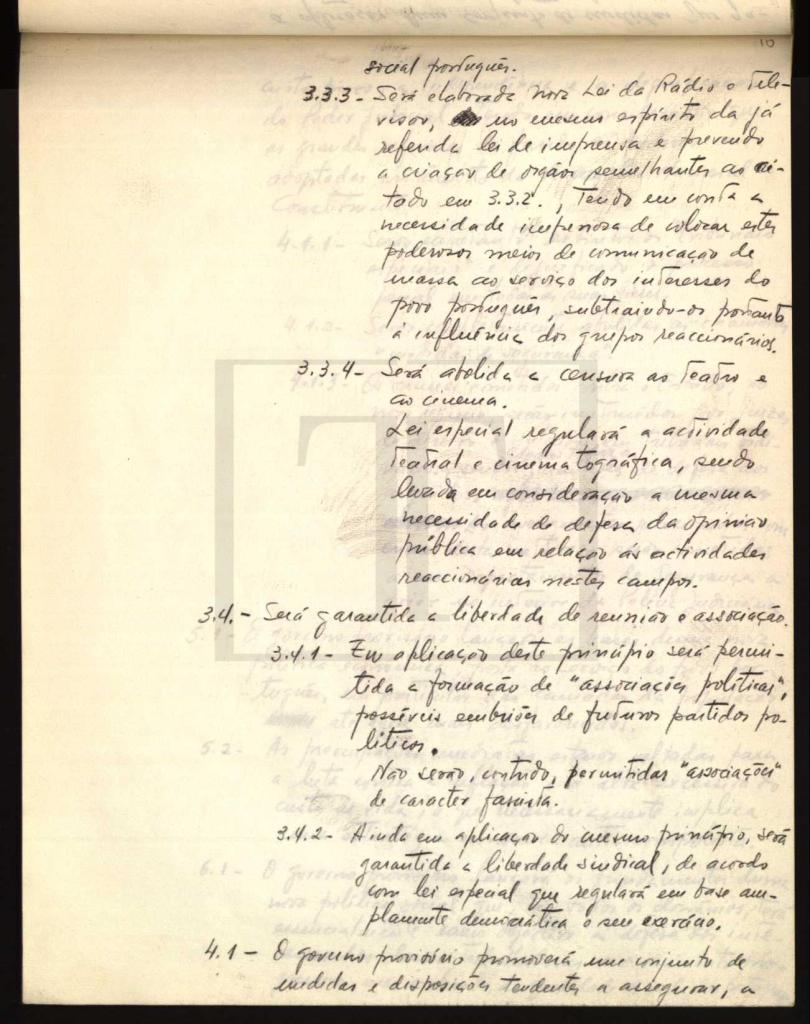 10
social português.
3.3.3 - Será elaborada nova Lei da Rádio e Tele-
visão, no mesmo espírito da já
referida lei de imprensa e prevendo
a criação de órgãos semelhantes ao ci-
tado em 3.3.2., tendo em conta a
necessidade imperiosa de colocar estes
poderosos meios de comunicação de
massa ao serviço dos interesses do
povo português, subtraindo-os portanto
à influência dos grupos reaccionários.
3.3.4 - Será abolida a censura ao teatro e
ao cinema.
Lei especial regulará a actividade
teatral e cinematográfica, sendo
levada em consideração a mesma
necessidade de defesa da opinião
pública em relação às actividades
reaccionárias nestes campos.
3.4. - Será garantida a liberdade de reunião e associação.
3.4.1 - Em aplicação deste princípio será permi-
tida a formação de "associações políticas",
possíveis embriões de futuros partidos po-
líticos.
Não serão, contudo, permitidas "associações"
de caracter fascista.
3.4.2 - Ainda em aplicação do mesmo princípio, será
garantida a liberdade sindical, de acordo
com lei especial que regulará em base am-
plamente democrática o seu exercício.
4.1 - O governo provisório promoverá um conjunto de
medidas e disposições tendentes a assegurar, a